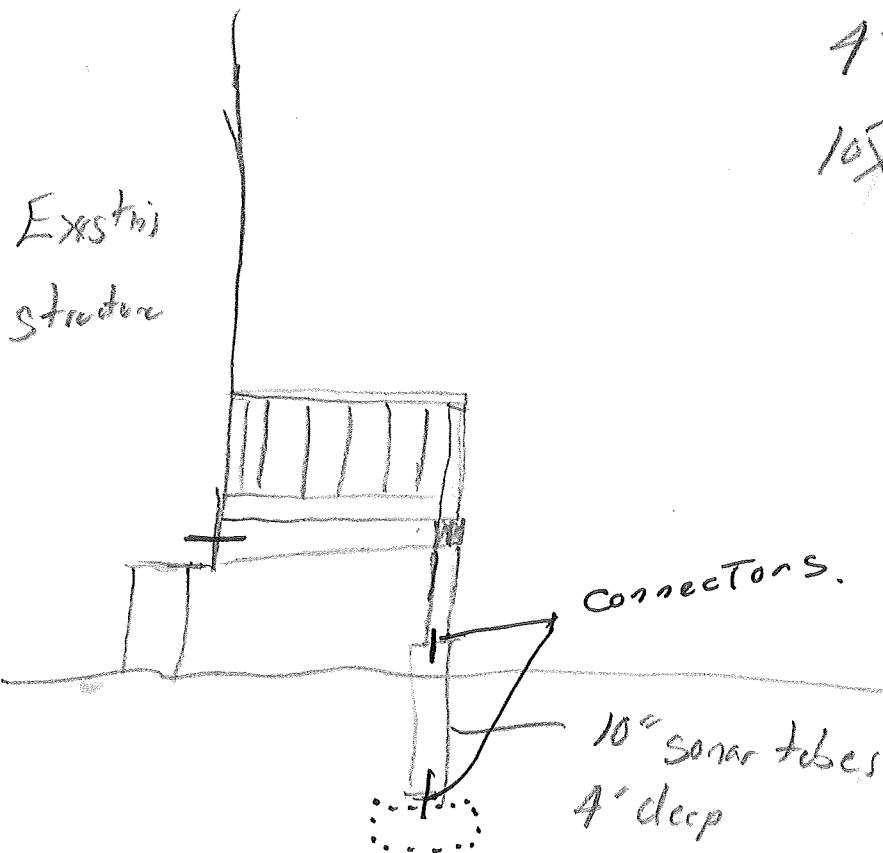 4'
10
Existin
structure
connecTors.
10" sonar tubes
4' deep